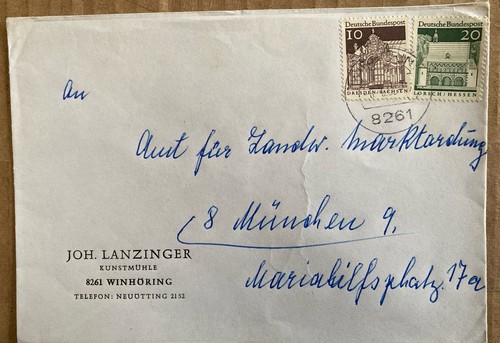 Deutsche Bundespost
10
DRESDEN/SACHSEN
Deutsche Bundespost
20
LORSCH/HESSEN
8261
An
Amt für Landw. Marktordung
8 München 9,
Mariahilfsplatz 17a
JOH. LANZINGER
KUNSTMÜHLE
8261 WINHÖRING
TELEFON: NEUÖTTING 2152